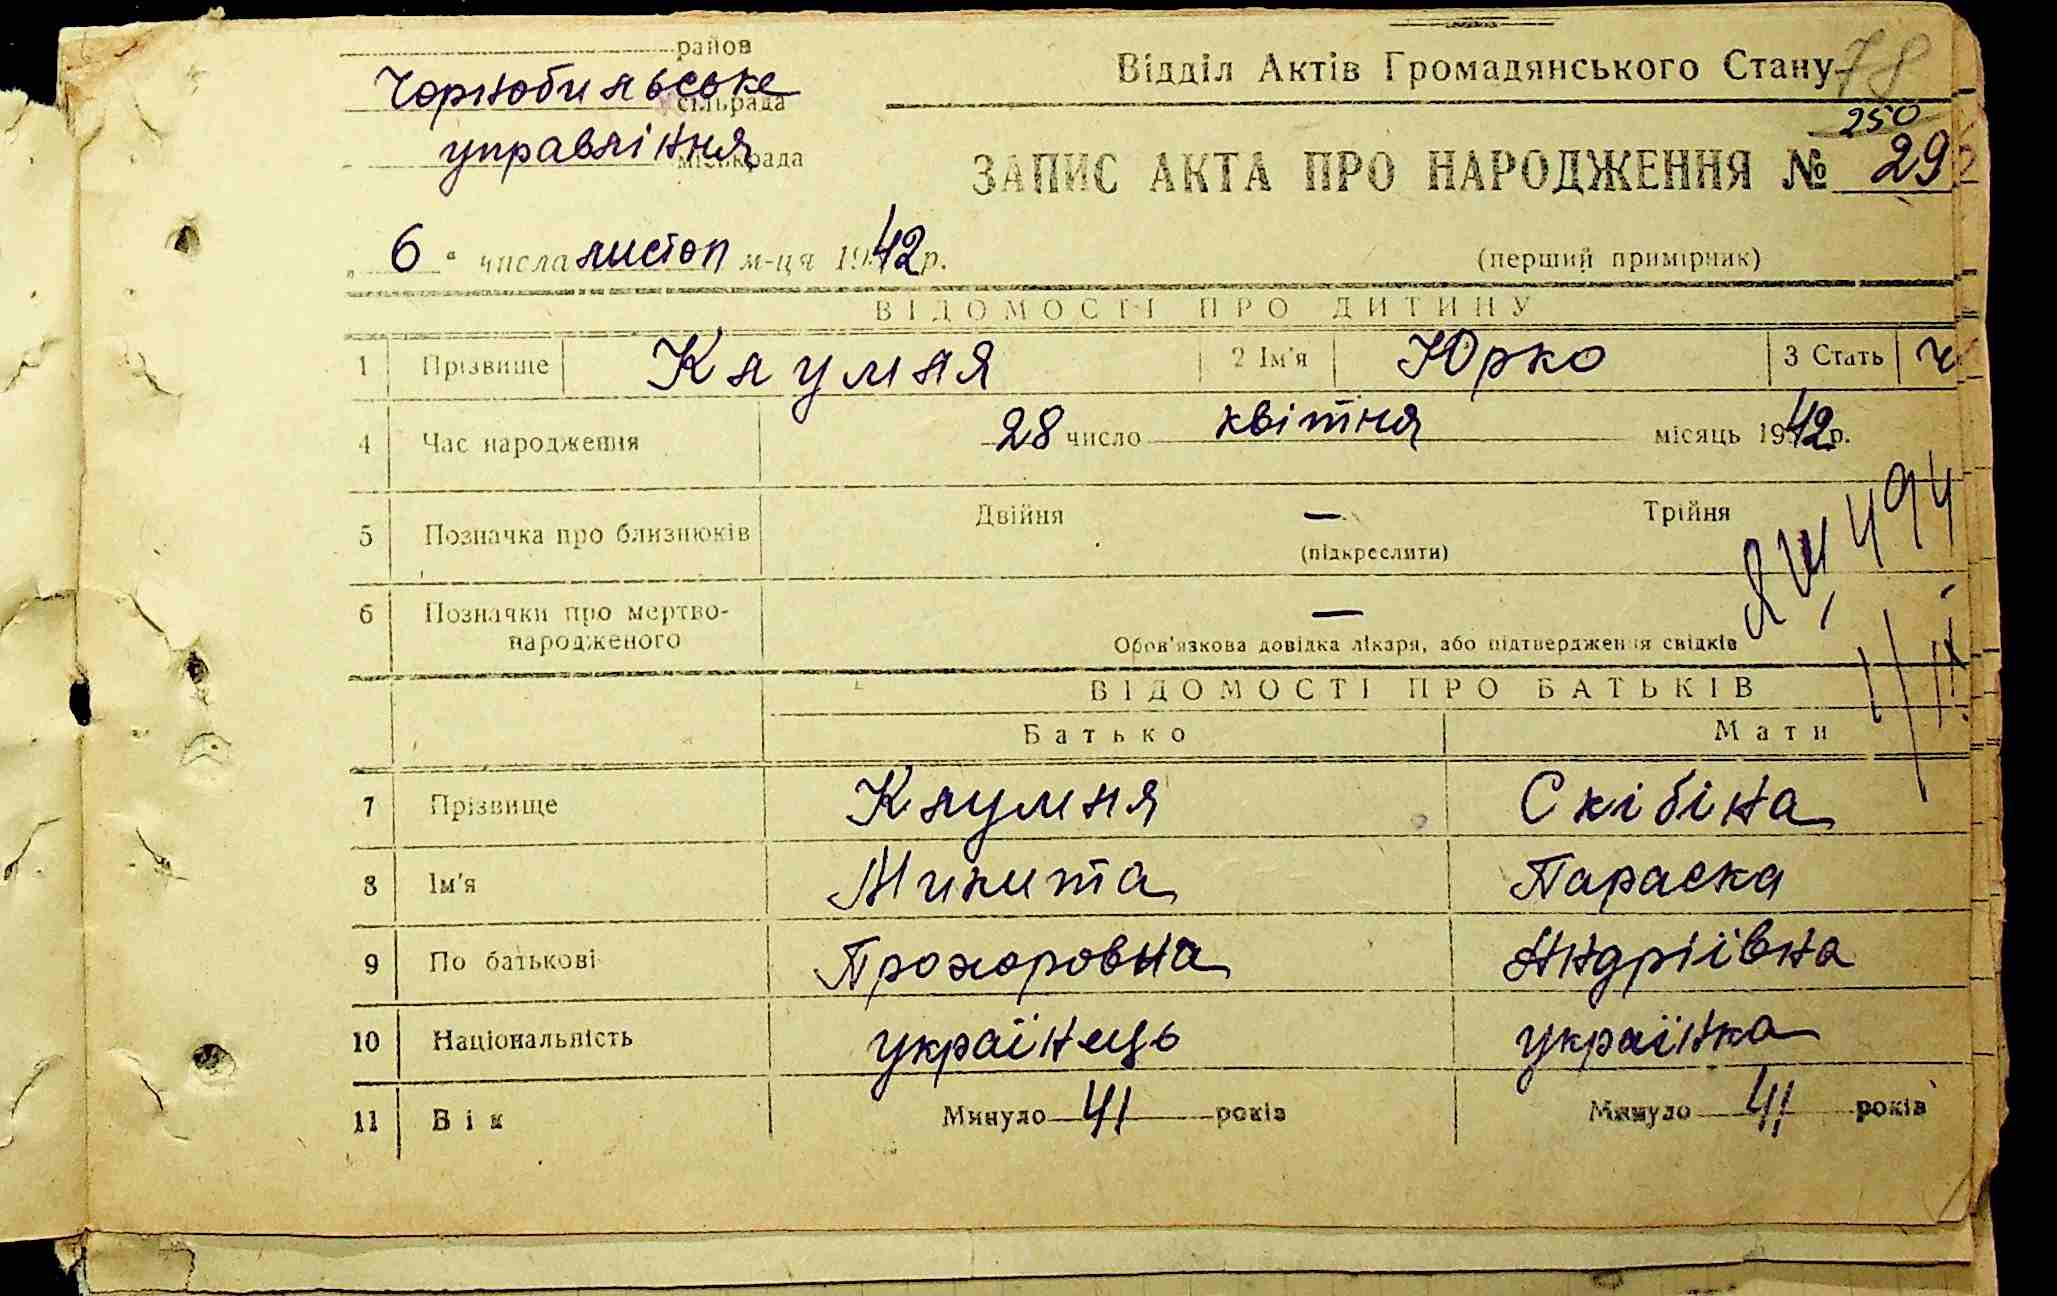 район
Чорнобильське
сільрада
управління
міськрада
Відділ Актів Громадянського Стану
78
250
ЗАПИС АКТА ПРО НАРОДЖЕННЯ № 29
„ 6 “ числа листоп м-ця 1942 р.
(перший примірник)
ВІДОМОСТІ ПРО ДИТИНУ
1 Прізвище Каумля 2 Ім'я Юрко 3 Стать ч
4 Час народження 28 число квітня місяць 1942 р.
5 Позначка про близнюків Двійня — Трійня
(підкреслити)
6 Позначки про мертво-
народженого —
Обов'язкова довідка лікаря, або підтвердження свідків
ВІДОМОСТІ ПРО БАТЬКІВ
Батько Мати
7 Прізвище Скібіна
8 Ім'я Микита Параска
9 По батькові Прохоровна Андріївна
10 Національність українець українка
11 Вік Минуло 41 років Минуло 41 років